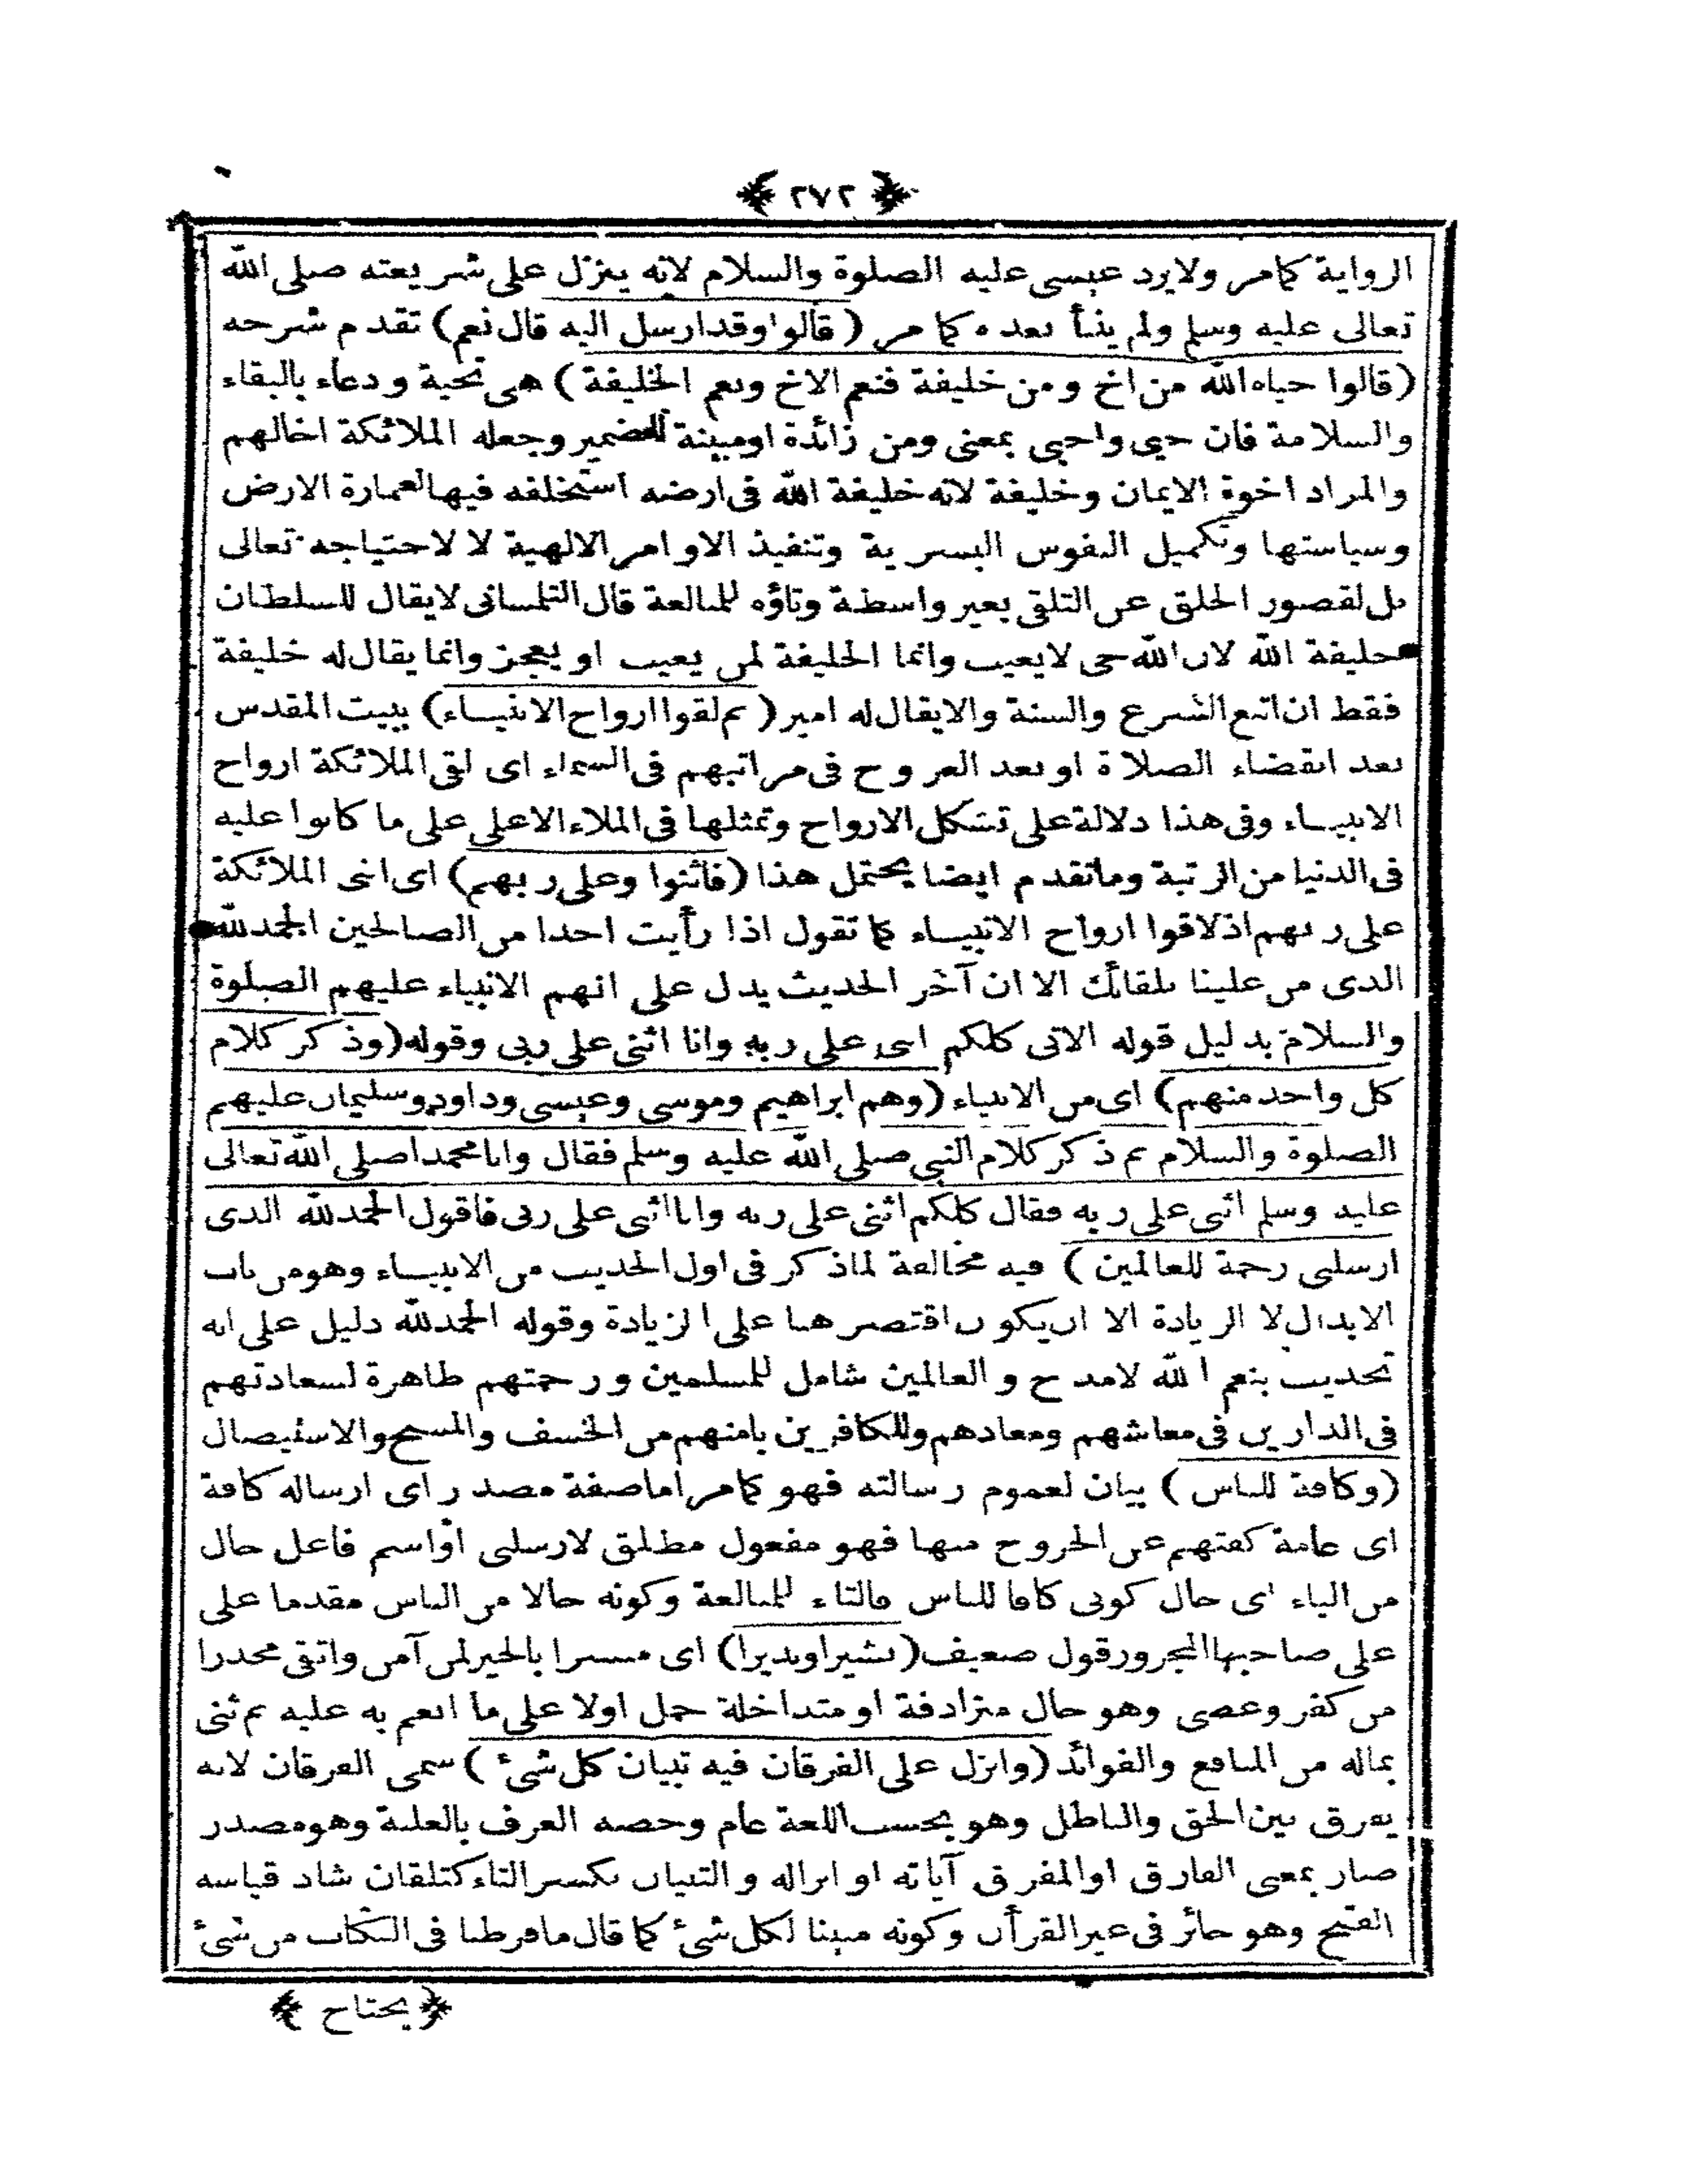 ﴿ ٢٧٢ ﴾
الرواية كمامر ولايرد عيسى عليه الصلوة والسلام لانه ينزل على شريعته صلى الله
تعالى عليه وسلم ولم ينبأ بعده كما مر (قالوا وقدارسل اليه قال نعم) تقدم شرحه
(قالوا حياه الله من اخ ومن خليفة فنعم الاخ ونعم الخليفة) هى تحية ودعاء بالبقاء
والسلامة فان حيى واحيى بمعنى ومن زائدة اومبينة للضمير وجعله الملائكة اخالهم
والمراد اخوة الايمان وخليفة لانه خليفة الله فى ارضه استخلفه فيها لعمارة الارض
وسياستها وتكميل النفوس البشرية وتنفيذ الاوامر الالهية لا لاحتياجه تعالى
بل لقصور الخلق عن التلقى بغير واسطة وتاؤه للمبالغة قال التلمسانى لايقال للسلطان
خليفة الله لان الله حى لايغيب وانما الخليفة لمن يغيب او يعجز وانما يقال له خليفة
فقط ان اتبع الشرع والسنة والايقال له امير (ثم لقوا ارواح الانبياء) ببيت المقدس
بعد انقضاء الصلاة اوبعد العروج فى مراتبهم فى السماء اى لقى الملائكة ارواح
الانبياء وفى هذا دلالة على تشكل الارواح وتمثلها فى الملاء الاعلى على ما كانوا عليه
فى الدنيا من الرتبة وماتقدم ايضا يحتمل هذا (فاثنوا وعلى ربهم) اى اثنى الملائكة
على ربهم اذلاقوا ارواح الانبياء كما تقول اذا رأيت احدا من الصالحين الحمدلله
الذى من علينا بلقائك الا ان آخر الحديث يدل على انهم الانبياء عليهم الصلوة
والسلام بدليل قوله الاتى كلكم اثنى على ربه وانا اثنى على ربى وقوله (وذكر كلام
كل واحد منهم) اى من الانبياء (وهم ابراهيم وموسى وعيسى وداود وسليمان عليهم
الصلوة والسلام ثم ذكر كلام النبى صلى الله عليه وسلم فقال وانا محمدا صلى الله تعالى
عليه وسلم اثنى على ربه فقال كلكم اثنى على ربه وانا اثنى على ربى فاقول الحمدلله الذى
ارسلنى رحمة للعالمين) فيه مخالفة لماذكر فى اول الحديث من الانبياء وهو من باب
الابدال لا الزيادة الا ان يكون اقتصر هنا على الزيادة وقوله الحمدلله دليل على انه
تحديث بنعم الله لامدح و العالمين شامل للمسلمين ورحمتهم ظاهرة لسعادتهم
فى الدارين فى معاشهم ومعادهم وللكافرين بامنهم من الخسف والمسخ والاستيصال
(وكافة للناس) بيان لعموم رسالته فهو كمامر اما صفة مصدر اى ارساله كافة
اى عامة كفتهم عن الخروج منها فهو مفعول مطلق لارسلنى اواسم فاعل حال
من الياء اى حال كونى كافا للناس فالتاء للمبالغة وكونه حالا من الناس مقدما على
على صاحبها المجرور قول ضعيف (بشيرا ونذيرا) اى مبشرا بالخير لمن آمن واتقى محذرا
من كفر وعصى وهو حال مترادفة او متداخلة حمل اولا على ما انعم به عليه ثم ثنى
بماله من المنافع والفوائد (وانزل على الفرقان فيه تبيان كل شئ) سمى الفرقان لانه
يفرق بين الحق والباطل وهو بحسب اللغة عام وخصه العرف بالغلبة وهو مصدر
صار بمعنى الفارق اوالمفرق آياته او انزاله والتبيان بكسر التاء كتلقان شاذ قياسه
الفتح وهو جائز فى غير القرأن وكونه مبينا لكل شئ كما قال مافرطنا فى الكتاب من شئ
﴿ يحتاح ﴾